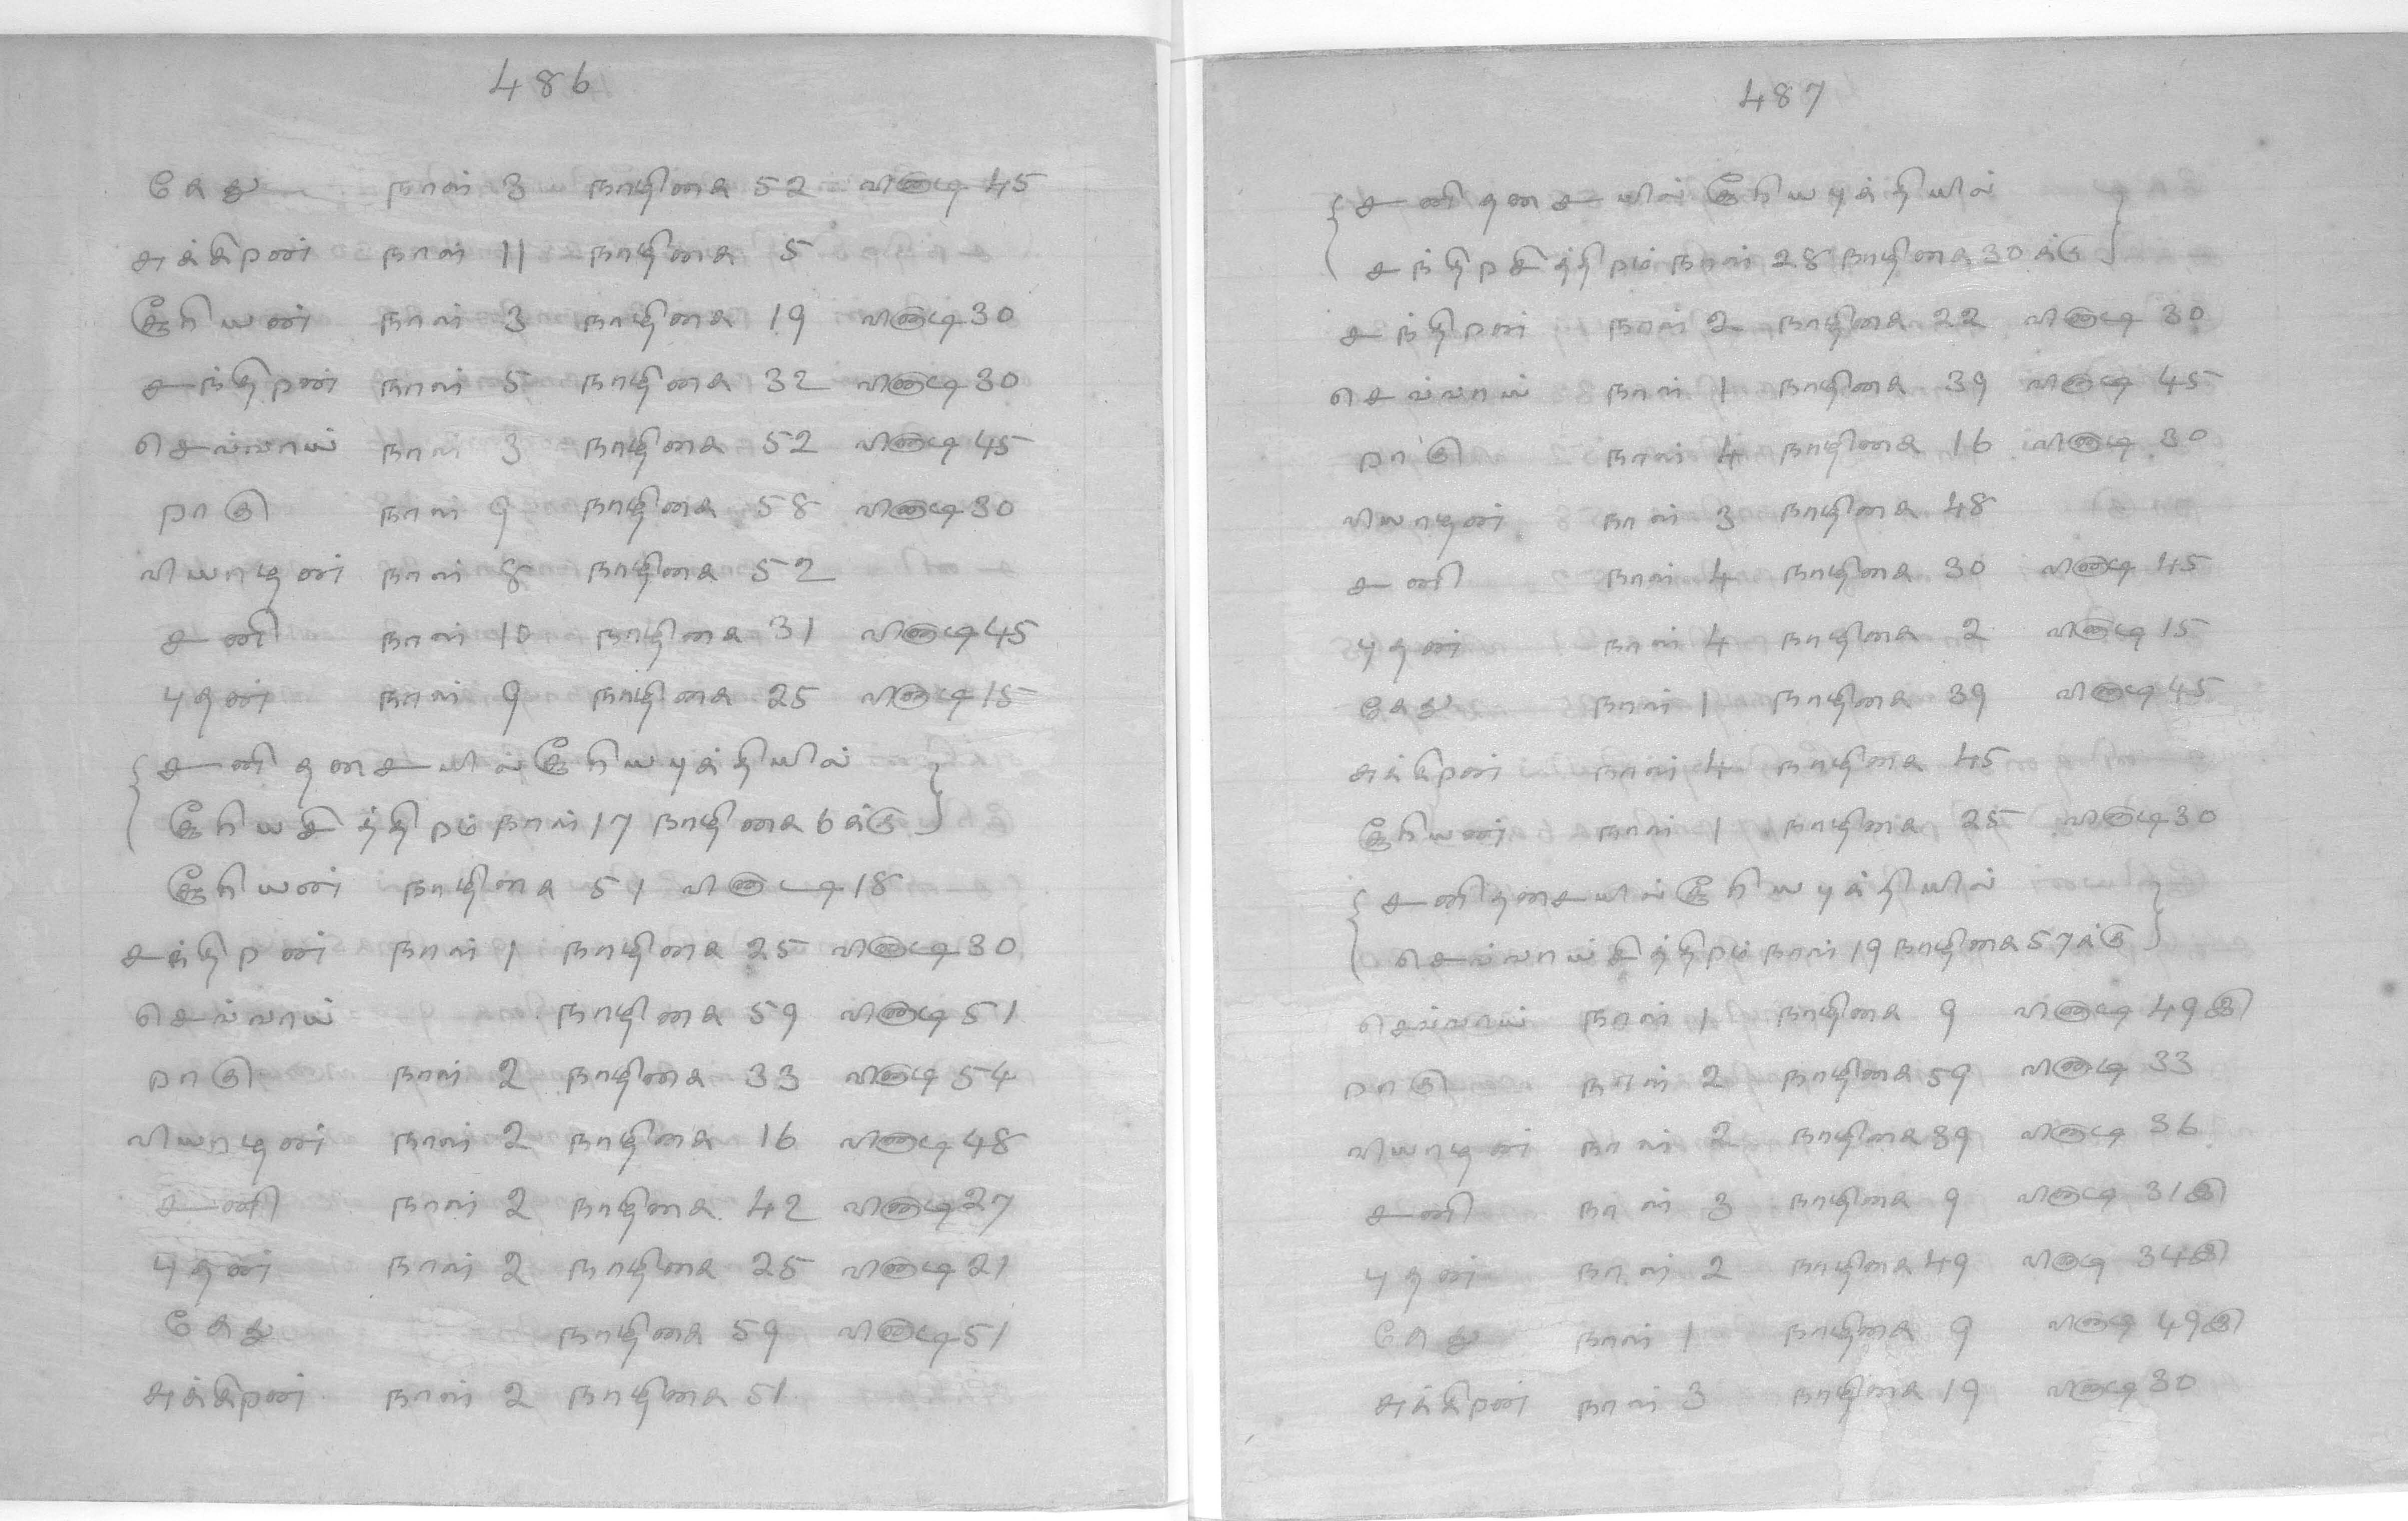 486
கேது நாள் 3 நாழிகை 52 வினாடி 45
சுக்கிறன் நாள் 11 நாழிகை 5
சூரியன் நாள் 3 நாழிகை 19 வினாடி 30
சந்திறன் நாள் 5 நாழிகை 32 வினாடி 30
செவ்வாய் நாள் 3 நாழிகை 52 வினாடி 45
றாகு நாள் 9 நாழிகை 58 வினாடி 30
வியாழன் நாள் 8 நாழிகை 52
சனி நாள் 10 நாழிகை 31 வினாடி 45
புதன் நாள் 9 நாழிகை 25 வினாடி 15
{ சனி தசையில் சூரிய புக்தியில் }
சூரிய சித்திறம் நாள் 17 நாழிகை 6 க்கு
சூரியன் நாழிகை 51 வினாடி 18
சந்திறன் நாள் 1 நாழிகை 25 வினாடி 30
செவ்வாய் நாழிகை 59 வினாடி 51
றாகு நாள் 2 நாழிகை 33 வினாடி 54
வியாழன் நாள் 2 நாழிகை 16 வினாடி 48
சனி நாள் 2 நாழிகை 42 வினாடி 27
புதன் நாள் 2 நாழிகை 25 வினாடி 21
கேது நாழிகை 59 வினாடி 51
சுக்கிறன் நாள் 2 நாழிகை 51
487
{ சனி தசையில் சூரிய புக்தியில் }
சந்திற சித்திறம் நாள் 28 நாழிகை 30 க்கு
சந்திறன் நாள் 2 நாழிகை 22 வினாடி 30
செவ்வாய் நாள் 1 நாழிகை 39 வினாடி 45
றாகு நாள் 4 நாழிகை 16 வினாடி 30
வியாழன் நாள் 3 நாழிகை 48
சனி நாள் 4 நாழிகை 30 வினாடி 45
புதன் நாள் 4 நாழிகை 2 வினாடி 15
கேது நாள் 1 நாழிகை 39 வினாடி 45
சுக்கிறன் நாள் 4 நாழிகை 45
சூரியன் நாள் 1 நாழிகை 25 வினாடி 30
{ சனி தசையில் சூரிய புக்தியில் }
செவ்வாய் சித்திறம் நாள் 19 நாழிகை 57 க்கு
செவ்வாய் நாள் 1 நாழிகை 9 வினாடி 49
றாகு நாள் 2 நாழிகை 59 வினாடி 33
வியாழன் நாள் 2 நாழிகை 39 வினாடி 36
சனி நாள் 3 நாழிகை 9 வினாடி 31
புதன் நாள் 2 நாழிகை 49 வினாடி 34
கேது நாள் 1 நாழிகை 9 வினாடி 49
சுக்கிறன் நாள் 3 நாழிகை 19 வினாடி 30